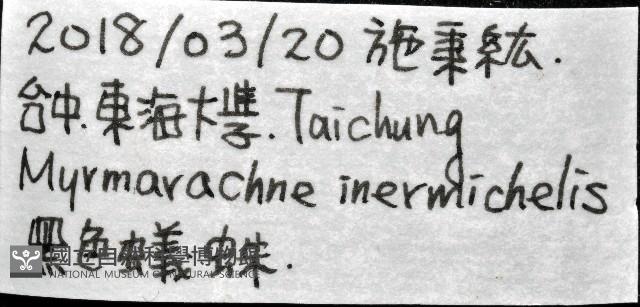 2018/03/20 施秉紘.
台中.東海大學.Taichung
Myrmarachne inermichelis
黑色蟻蛛.
國立自然科學博物館
NATIONAL MUSEUM OF NATURAL SCIENCE